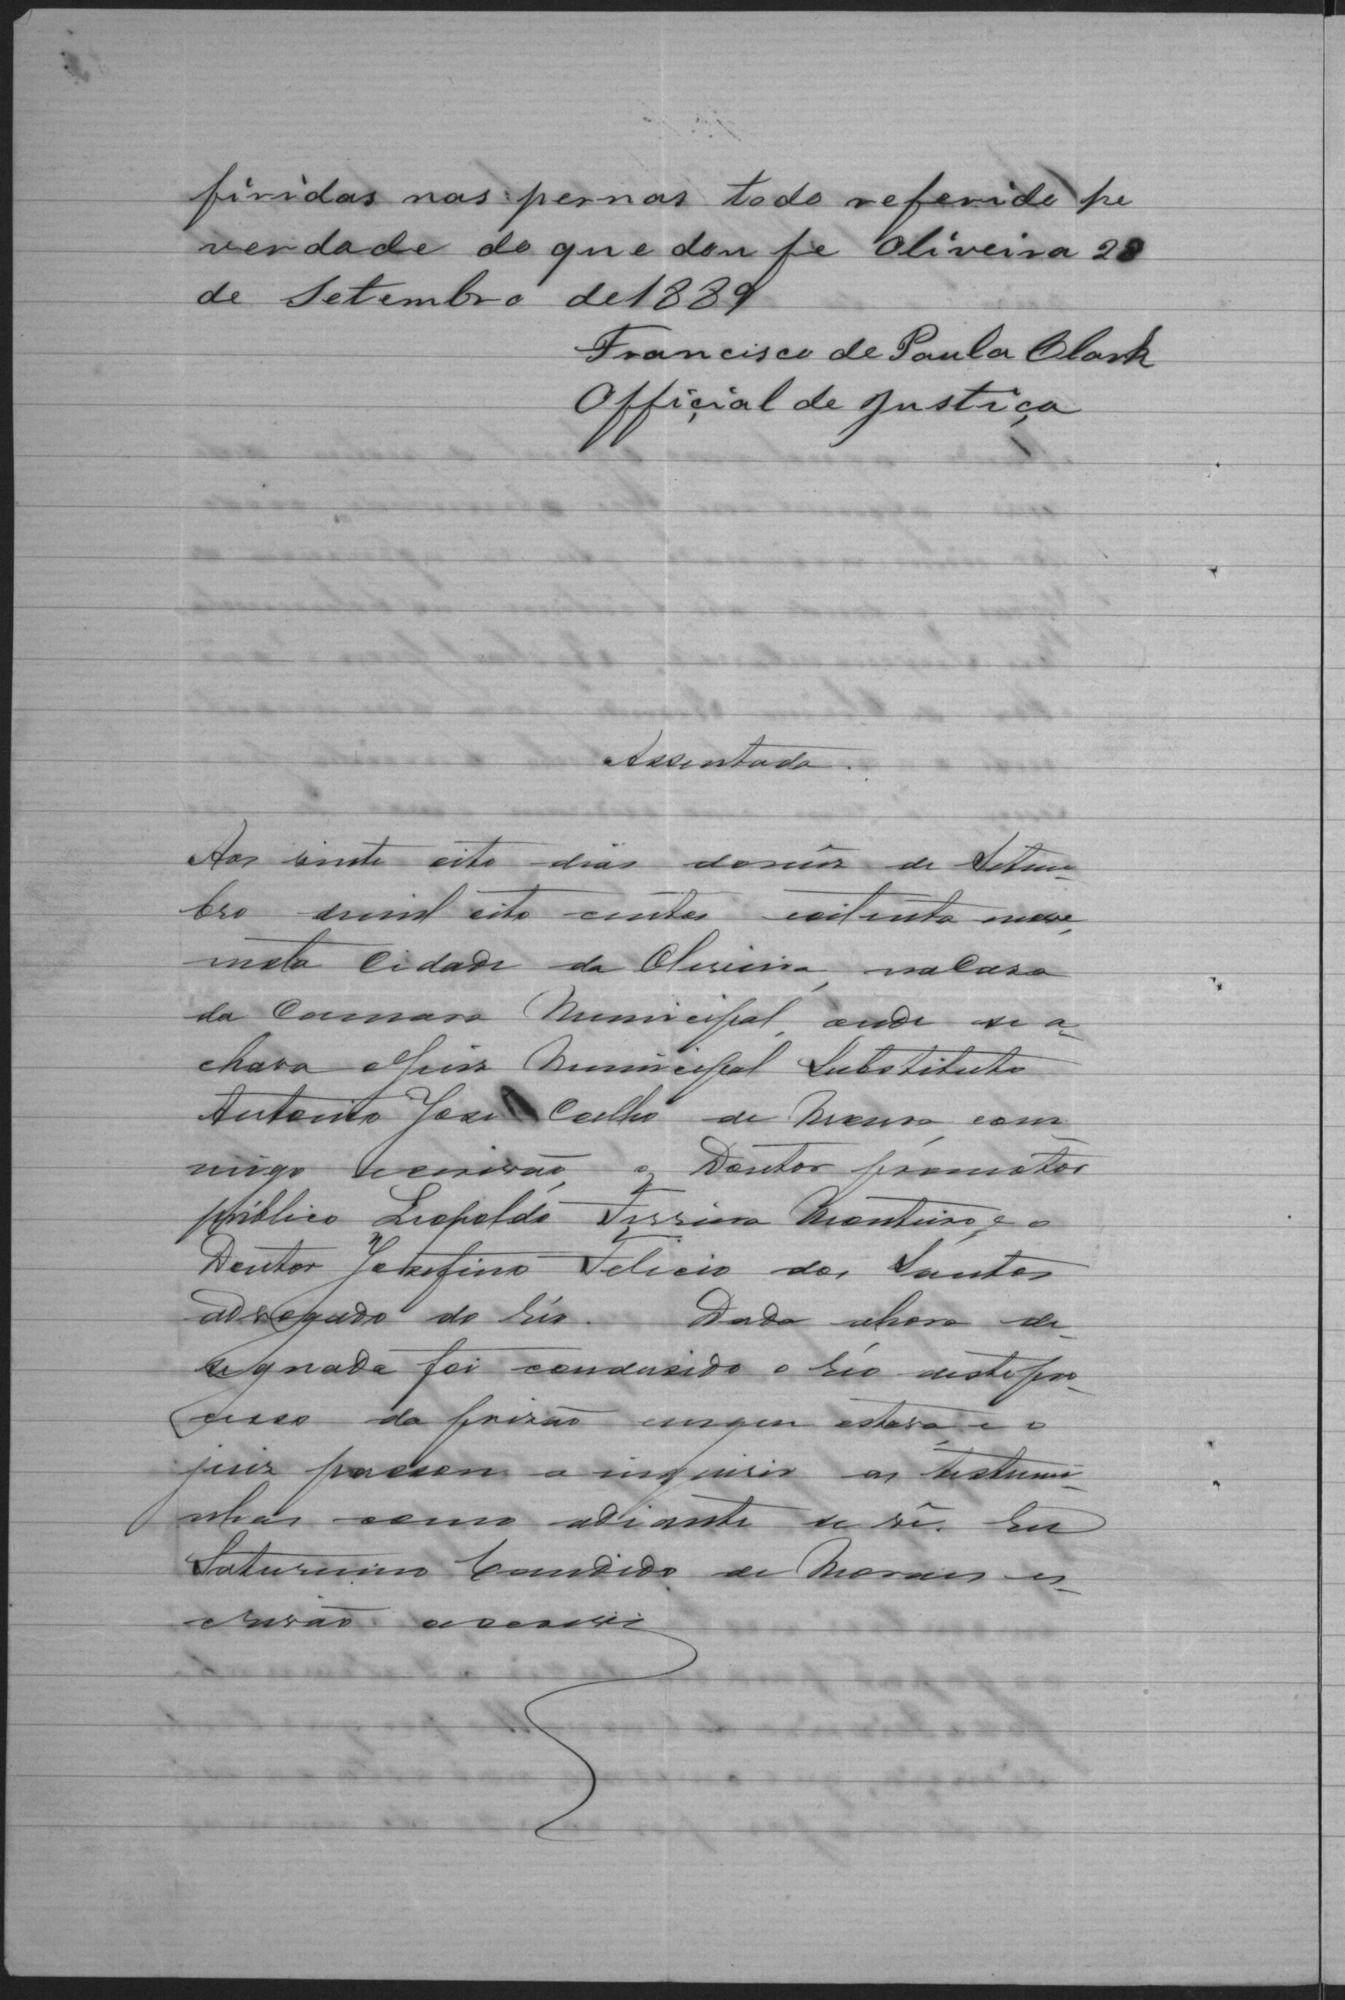 firidas nas pernas todo referido he
verdade do que dou fe Oliveira 28
de Setembro de 1889
Francisco de Paula Clark
Official de Justiça
Assentada.
Aos vinte oito dias domês de Setem-
bro demil oito centos eoitenta nove,
nesta Cidade da Oliveira, na Casa
da Camara Municipal, onde se a-
chava oJuiz Municipal Substituto
Antonio José Coelho de Moura, com
migo escrivão, o Doutor promotor
publico Leopoldo Ferreira Monteiro, e o
Doutor Josefino Felicio dos Santos
advogado do réo. Dada ahora de-
signada foi condusido o réo deste pro-
cesso da prizão emque estava, e o
juiz passou a inquirir as testemu-
nhas como adiante se vê. Eu
Saturnino Candido de Moraes es-
crivão oescrevi